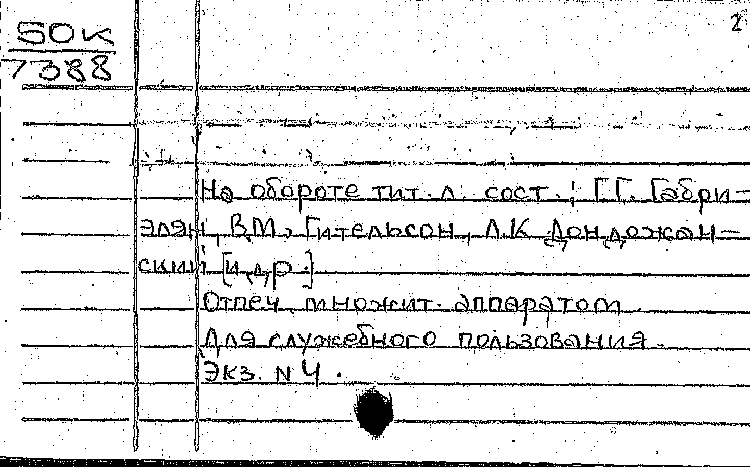 2
50к
7388
На обороте тит. л. сост.: Г.Г. Габри-
элян, В.М. Гительсон, Л.К. Дондожан-
ский [и др.]
Отпеч. множит. аппаратом
Для служебного пользования.
Экз. N 4.